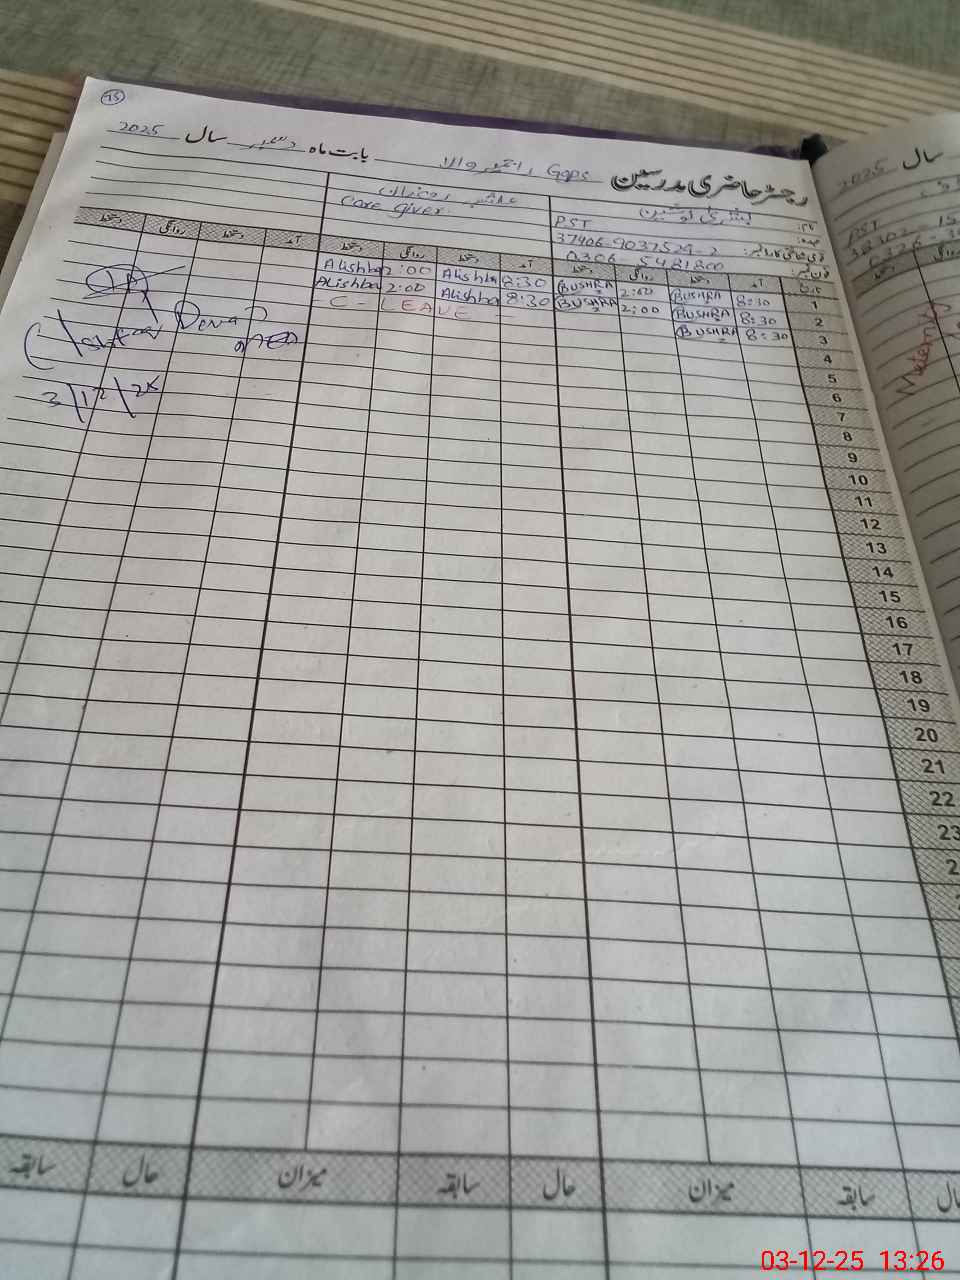 15
رجسٹر حاضری مدرسین Ggps والا بابت ماہ دسمبر سال 2025
نام: بشریٰ نوشین
عہدہ: PST
قومی شناختی کارڈ نمبر: 37406-9037529-2
فون نمبر: 0306-5481800
Care giver
تاریخ آمد دستخط روانگی دستخط آمد دستخط روانگی دستخط آمد دستخط روانگی دستخط
1 8:30 BUSHRA 2:00 BUSHRA 8:30 Alishba 2:00 Alishba
2 8:30 BUSHRA 2:00 BUSHRA 8:30 Alishba 2:00 Alishba
3 8:30 BUSHRA C - LEAVE -
4
5
6
7
8
9
10
11
12
13
14
15
16
17
18
19
20
21
22
23
3/12/25
میزان حال سابقہ میزان حال سابقہ
سال 2025
PST
دستخط
03-12-25 13:26